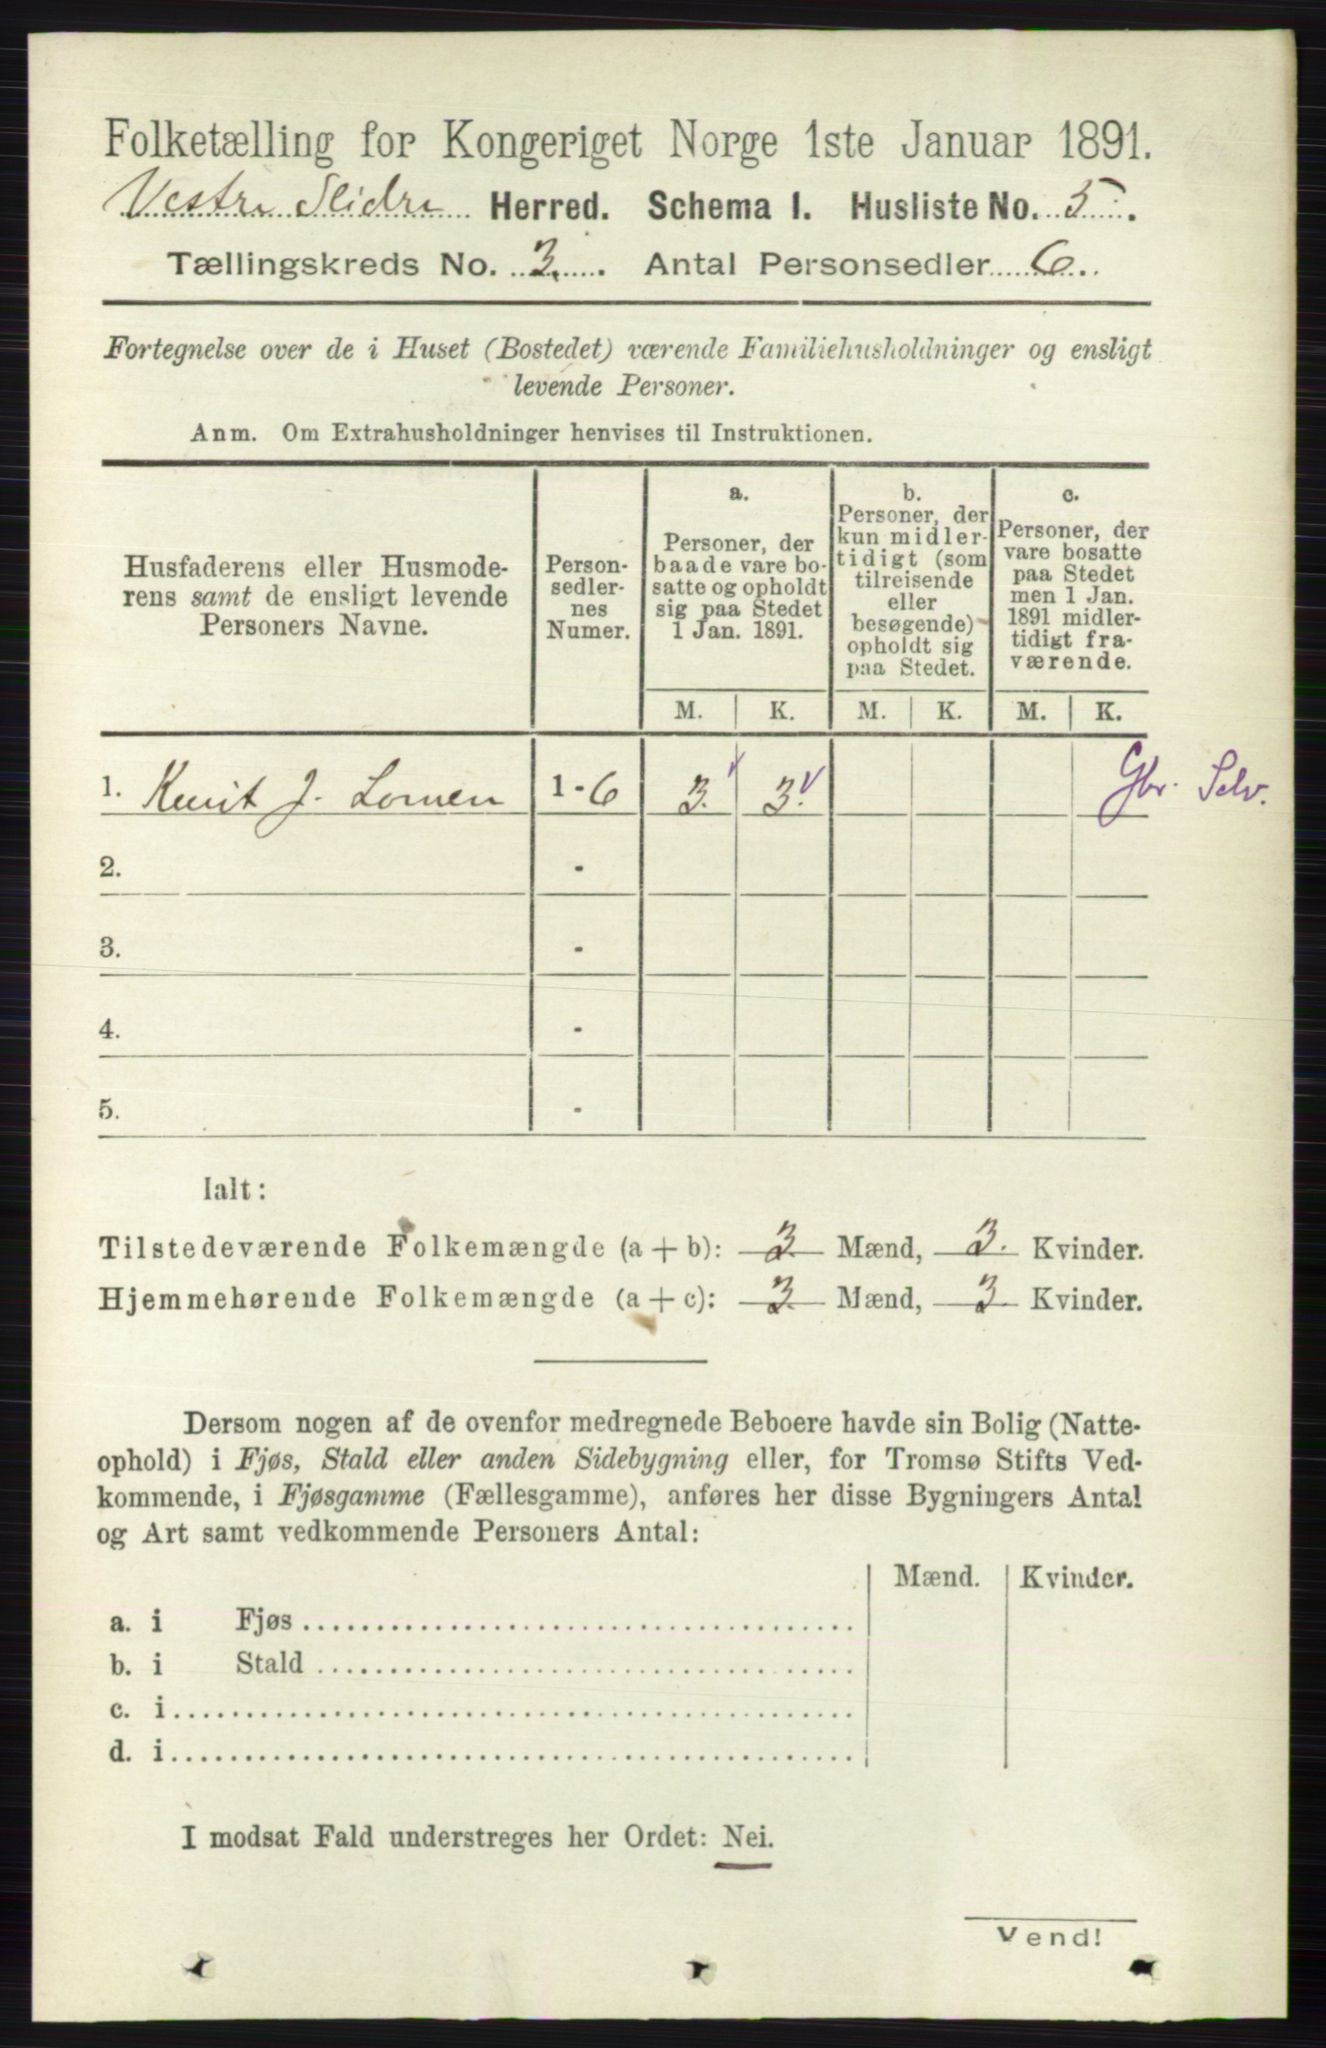 Folketælling for Kongeriget Norge 1ste Januar 1891.
Vestre Slidre Herred. Schema 1. Husliste No. 5.
Tællingskreds No. 3. Antal Personsedler 6.
Fortegnelse over de i Huset (Bostedet) værende Familiehusholdninger og ensligt
levende Personer.
Anm. Om Extrahusholdninger henvises til Instruktionen.
Husfaderens eller Husmode-
rens samt de ensligt levende
Personers Navne.
Person-
sedler-
nes
Numer.
a.
Personer, der
baade vare bo-
satte og opholdt
sig paa Stedet
1 Jan. 1891.
b.
Personer, der
kun midler-
tidigt (som
tilreisende
eller
besøgende)
opholdt sig
paa Stedet.
c.
Personer, der
vare bosatte
paa Stedet
men 1 Jan.
1891 midler-
tidigt fra-
værende.
M. K. M. K. M. K.
1. Knut J. Lomen 1-6 3. 3. Gbr. Selv.
2. -
3. -
4. -
5. -
Ialt:
Tilstedeværende Folkemængde (a + b): 3 Mænd, 3. Kvinder.
Hjemmehørende Folkemængde (a + c): 3 Mænd, 3 Kvinder.
Dersom nogen af de ovenfor medregnede Beboere havde sin Bolig (Natte-
ophold) i Fjøs, Stald eller anden Sidebygning eller, for Tromsø Stifts Ved-
kommende, i Fjøsgamme (Fællesgamme), anføres her disse Bygningers Antal
og Art samt vedkommende Personers Antal:
Mænd. Kvinder.
a. i Fjøs
b. i Stald
c. i
d. i
I modsat Fald understreges her Ordet: Nei.
Vend!